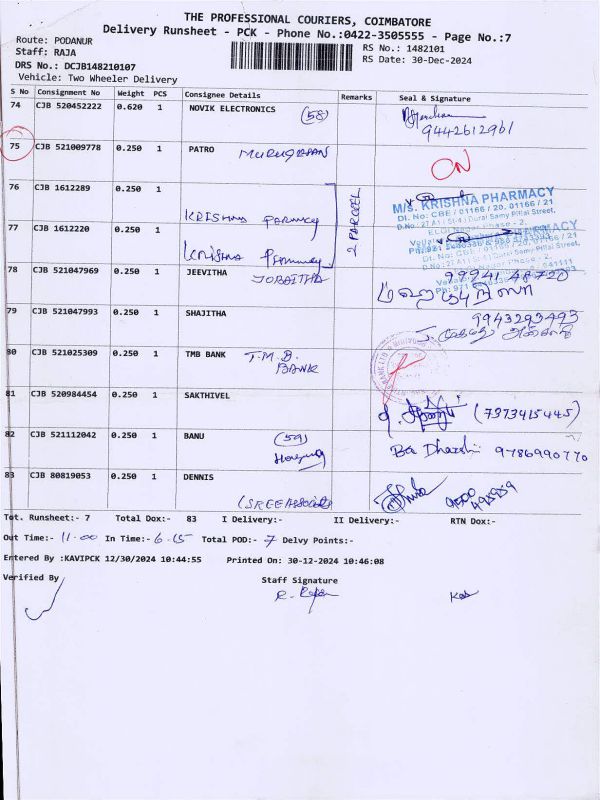 THE PROFESSIONAL COURIERS, COIMBATORE
Delivery Runsheet - PCK - Phone No.:0422-3505555 - Page No.:7
Route: PODANUR
RS No.: 1482101
Staff: RAJA
RS Date: 30-Dec-2024
DRS No.: DCJB148210107
Vehicle: Two Wheeler Delivery
S No Consignment No Weight PCS Consignee Details Remarks Seal & Signature
74 CJB 520452222 0.620 1 NOVIK ELECTRONICS (58)
9442612961
75 CJB 521009778 0.250 1 PATRO MURUGAPPAN
ON
76 CJB 1612289 0.250 1
KRISHNA PARMACY
2 PARCEL
M/s. KRISHNA PHARMACY
Dl. No: CBE / 01166 / 20, 01166 / 21
D.No : 27 A1 (St-4) Durai Samy Pillai Street,
77 CJB 1612220 0.250 1
KRISHNA PHARMACY
78 CJB 521047969 0.250 1 JEEVITHA JOBAITHA
99941 48720
79 CJB 521047993 0.250 1 SHAJITHA
9943293493
80 CJB 521025309 0.250 1 TMB BANK T.M.B.
BANK
81 CJB 520984454 0.250 1 SAKTHIVEL
(7373415445)
82 CJB 521112042 0.250 1 BANU (59)
9786990770
83 CJB 80819053 0.250 1 DENNIS
(SREE Associates
Tot. Runsheet:- 7 Total Dox:- 83 I Delivery:- II Delivery:- RTN Dox:-
Out Time:- 11-00 In Time:- 6-15 Total POD:- 7 Delvy Points:-
Entered By :KAVIPCK 12/30/2024 10:44:55 Printed On: 30-12-2024 10:46:08
Verified By Staff Signature